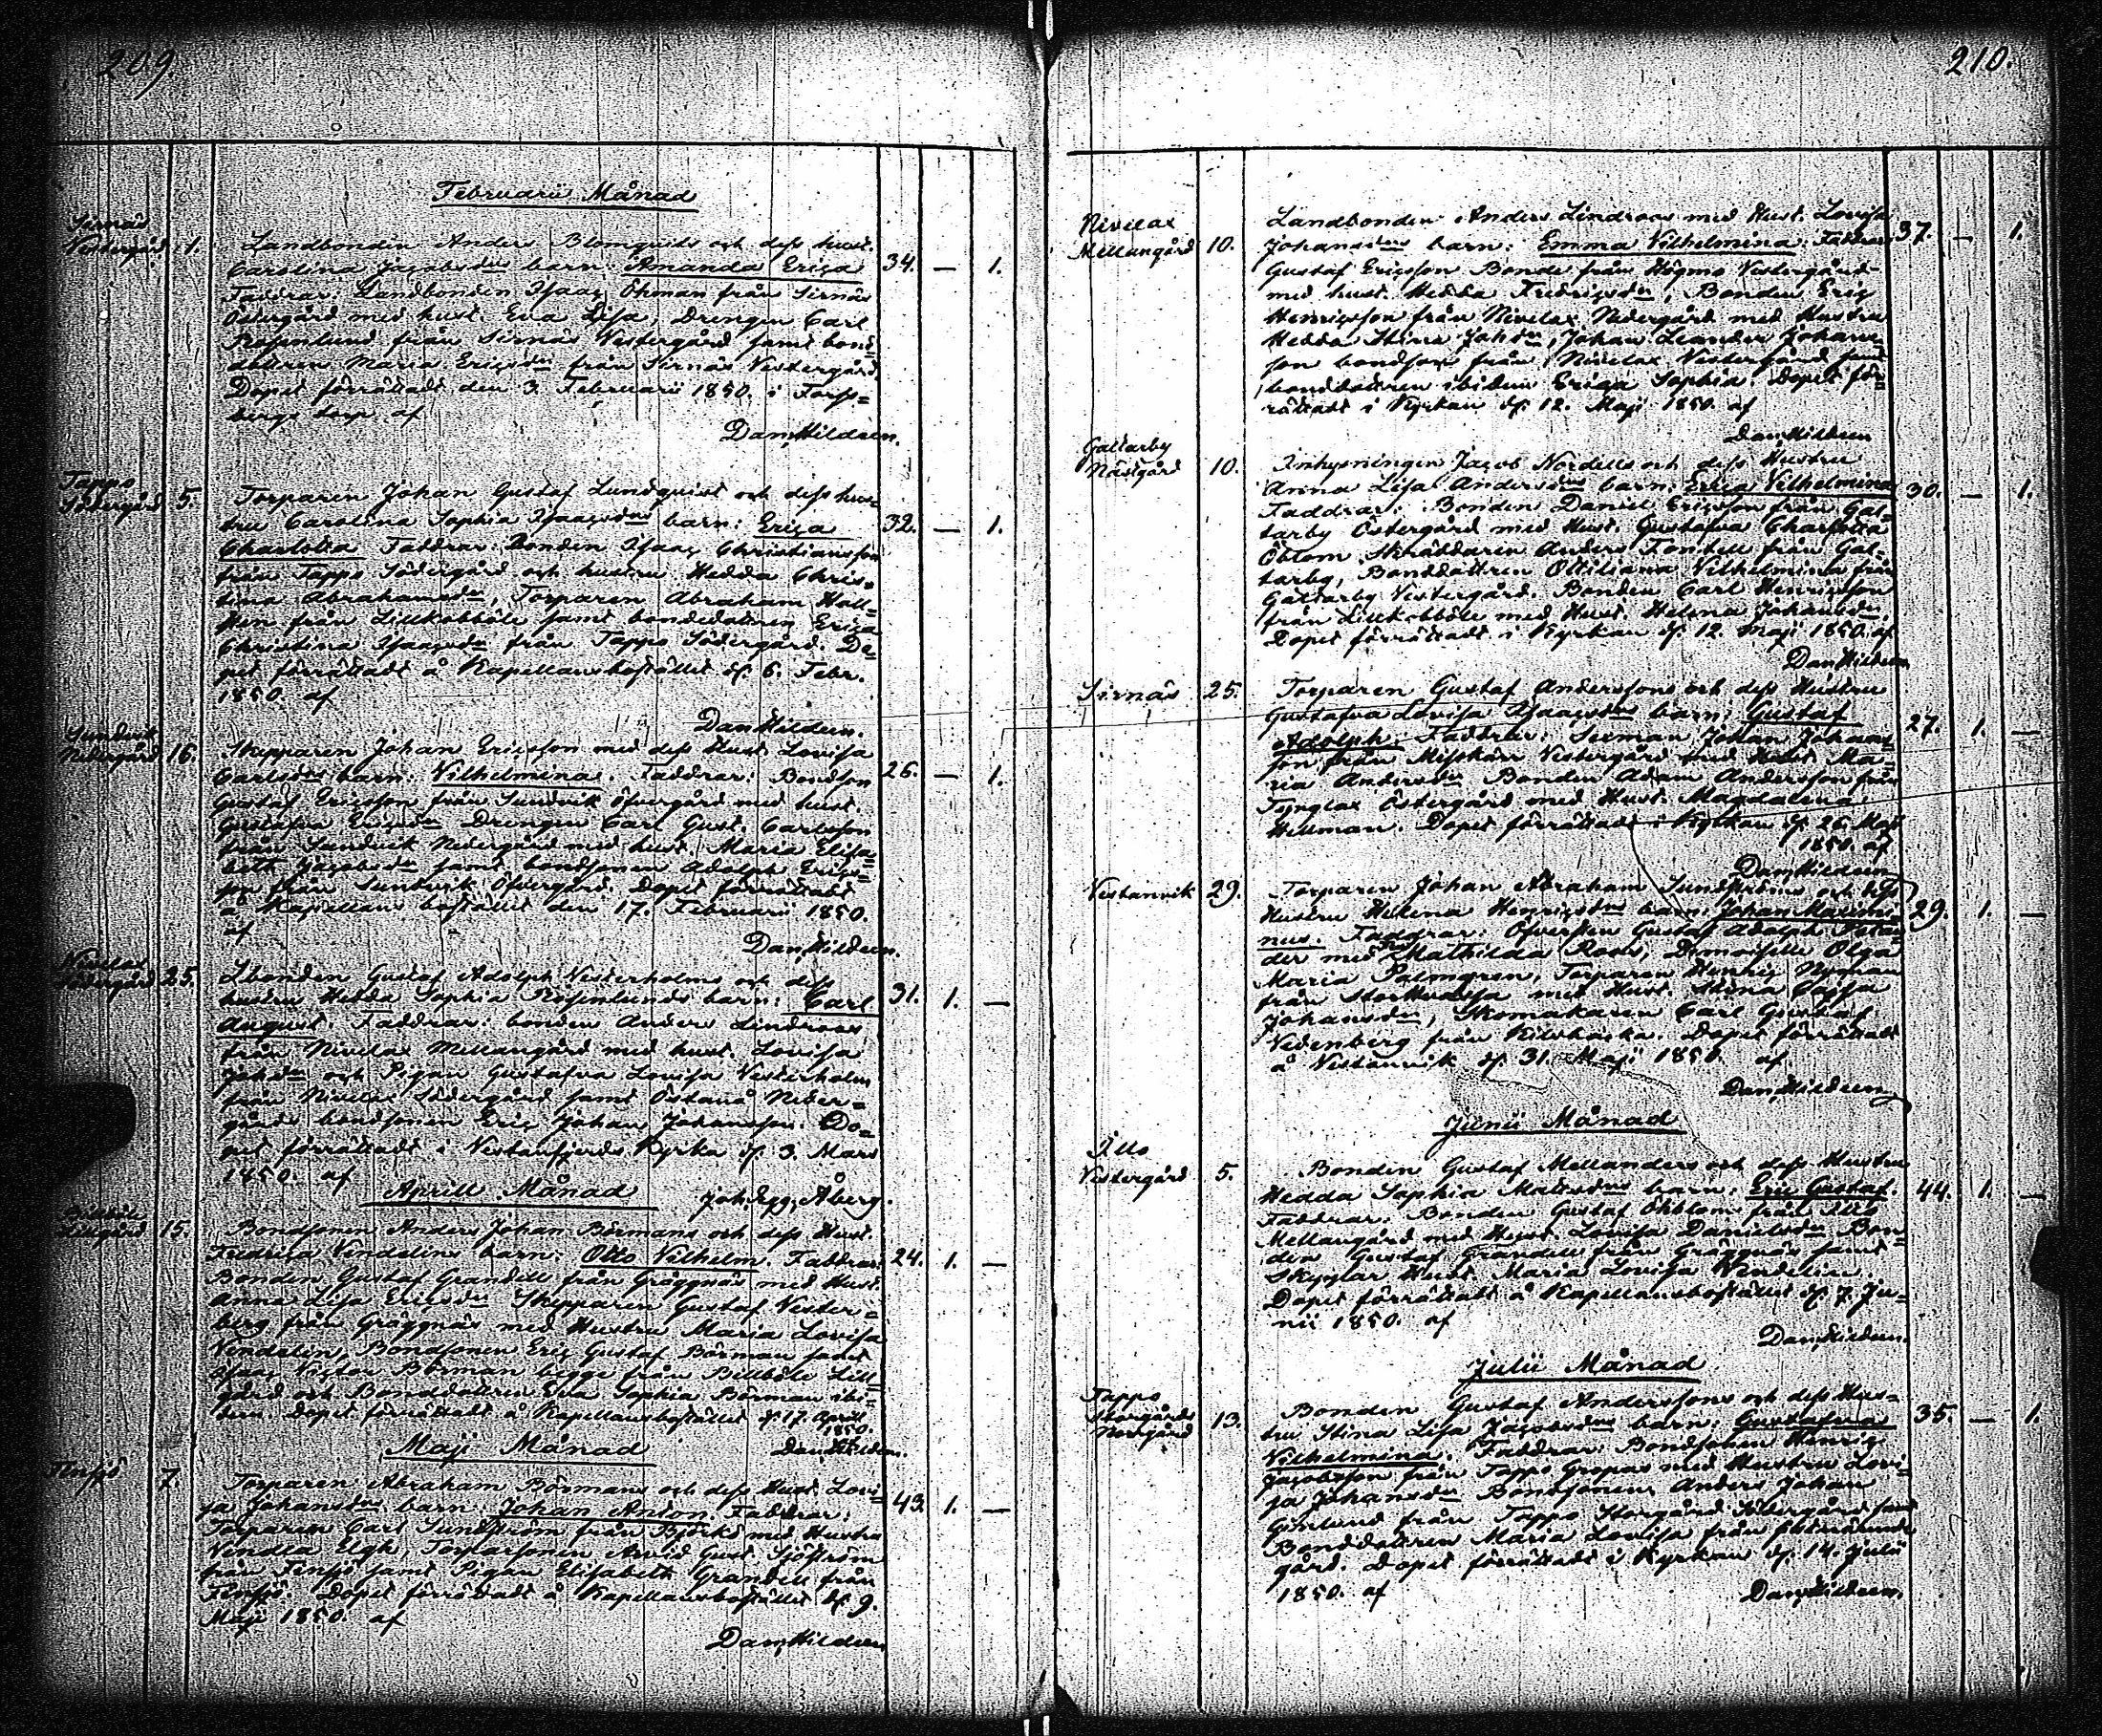 209.
Februarii Månad
Sirnäs
Vestergård 1. Landbonden Anders Blomqvists och dess hust.
Carolina Jacobsdrs barn: Amanda Erica 34. — 1.
Faddrar: Landbonden Isaac Öhman från Sirnäs
Östergård med hust. Eva Lisa, Drengen Carl
Rosenlund från Sirnäs Vestergård samt bond=
dottren Maria Ericsdr från Sirnäs Vestergård.
Dopet förrättadt den 3. Februarii 1850. i
torp af
Dan. Hildeen.
Tappo
Södergård 5. Torparen Johan Gustaf Lundqvist och dess hus=
tru Carolina Sophia Isaacsdrs barn: Erica 32. — 1.
Charlotta Faddrar: Bonden Isaac Christiansson
från Tappo Södergård och hustru Hedda Chris=
tina Abrahamsdr, Torparen Abraham Hall=
från Lillkobböle samt bondedottren Erica
Christina Isaacsdr från Tappo Södergård. Do=
pet förrättadt å Kapellansbostället d. 6. Febr.
1850. af
Dan Hildeen.
Sundvik
Nedergård 16. Skepparen Johan Ericsson med dess Hust. Lovisa
Carlsdrs barn: Vilhelmina. Faddrar: Bondson 26. — 1.
Gustaf Ericsson från Sundvik Öfvergård med hust.
Gustafva Ericsdr Drengen Carl Gust. Carlsson
från Sundvik Nedergård med hust. Maria Elisa=
beth Jacobsdr samt bondsonen Adolph Erics=
son från Sundvik Öfvergård. Dopet förrättadt
å Kapellans bostället den 17. Februarii 1850.
af
Dan. Hildeen.
Nivelax
Södergård 25. Lbonden Gustaf Adolph Vesterholms och dess
hustru Hedda Sophia Rosenlunds barn: Carl 31. 1. —
August. Faddrar: bonden Anders Lindroos
från Nivelax Mellangård med hust. Lovisa
Johsdr och Pigan Gustafva Lovisa Vesterholm
från Nivelax Södergård samt Östanå Neder=
gårds bondsonen Eric Johan Johansson. Do=
pet förrättadt i Vestanfjerds Kyrka d. 3. Mars
1850. af
Joh. Åberg.
Aprill Månad
Billböle
Lillgård 15. Bondsonen Anders Johan Börmans och dess Hust.
Fredrica Vendelins barn: Otto Vilhelm. Faddrar: 24. 1. —
Bonden Gustaf Grandell från Gräggnäs med Hust.
Anna Lisa Ericsdr Skepparen Gustaf Vester=
berg från Gräggnäs med Hustru Maria Lovisa
Vendelin, Bondsonen Eric Gustaf Börman samt
Isaac Victor Börman begge från Billböle Lill=
gård och Bonddottren Eva Sophia Börman ibi=
dem. Dopet förrättadt å Kapellansbostället d. 17. Aprill
1850.
Dan. Hildeen.
Maji Månad
Finsjö 7. Torparen Abraham Börmans och dess Hust. Lovi=
sa Johansdrs barn: Johan Anton. Faddrar: 43. 1. —
Torparen Carl Sundström från Björkö med Hustru
Vendla Elgh, Torparsonen Arvid Gust. Sjöström
från Finsjö samt Pigan Elisabeth Grandell från
Finsjö. Dopet förrättadt å Kapellansbostället d. 9.
Maji 1850. af
Dan. Hildeen
210.
Nivelax
Mellangård 10. Landbonden Anders Lindroos med Hust. Lovisa
Johansdrs barn: Emma Vilhelmina: Faddrar: 37. — 1.
Gustaf Ericsson Bonde från Högmo Vestergård
med hust. Hedda Fredricsdr, Bonden Eric
Henricsson från Nivelax Nedergård med Hustru
Hedda Stina Johsdr, Johan Leander Johans=
son bondson från Nivelax Vestergård samt
bonddottren ibidem Erica Sophia. Dopet för=
rättadt i Kyrkan d. 12. Maji 1850. af
Dan Hildeen
Galtarby
Nästgård 10. Inhysningen Jacob Nordells och dess Hustru
Anna Lisa Andersdrs barn: Erica Vilhelmina 30. — 1.
Faddrar: Bonden Daniel Ericsson från Gal=
tarby Östergård med Hust. Gustafva Charlotta
Öblom Skräddaren Anders Fontell från Gal=
tarby, Bonddottren Ottiliana Vilhelmina från
Galtarby Vestergård. Bonden Carl Henricsson
från Lillkobböle med Hust. Helena Johansdr.
Dopet förrättadt i Kyrkan d. 12. Maji 1850. af
Dan Hildeen
Sirnäs 25. Torparen Gustaf Anderssons och dess Hustru
Gustafva Lovisa Isaacsdrs barn: Gustaf 27. 1. —
Adolph. Faddrar: Seeman Johan Johans=
son från Misskärr Vestergård med Hust. Ma=
ria Andersdr Bonden Adam Andersson från
Tynglax Östergård med Hust. Magdalena
Hellman. Dopet förrättadt i Kyrkan d. 26 Maji
1850. af
Dan Hildeen
Vestanvik 29. Torparen Johan Abraham Sundströms och dess
Hustru Helena Henricsdrs barn: Johan Maximi= 29. 1. —
nus. Faddrar: Öfversten Gustaf Adolph
der med Mathilda Roos, Demoiselle Olga
Maria Palmgren, Torparen Henric Nyman
från med Hust. Stina Cajsa
Johansdr, Skomakaren Carl Gustaf
Vedenberg från Dopet förrättadt
å Vestanvik d. 31. Maji 1850. af
Dan. Hildeen
Junii Månad
Illo
Vestergård 5. Bonden Gustaf Mellanders och dess Hustru
Hedda Sophia Mattsdrs barn: Eric Gustaf. 44. 1. —
Faddrar: Bonden Gustaf Ökblom från Illo
Mellangård med Hust. Lovisa Danielsdr Bon=
den Gustaf Grandell från Gräggnäs samt
Hust. Maria Lovisa Wendelin.
Dopet förrättadt å Kapellansbostället d. 7. Ju=
nii 1850. af
Dan. Hildeen.
Julii Månad
Tappo
Storgårds
Norrgård 13. Bonden Gustaf Anderssons och dess Hus=
tru Stina Lisa Jacobsdrs barn: Gustafva 35. — 1.
Vilhelmina. Faddrar: Bondsonen Henric
Jacobsson från Tappo Gropas med Hustru Lovi=
sa Johansdr Bondsonen Anders Johan
från Tappo Storgård Södergård samt
Bonddottren Maria Lovisa från
gård. Dopet förrättadt i Kyrkan d. 14. Julii
1850. af
Dan. Hildeen.